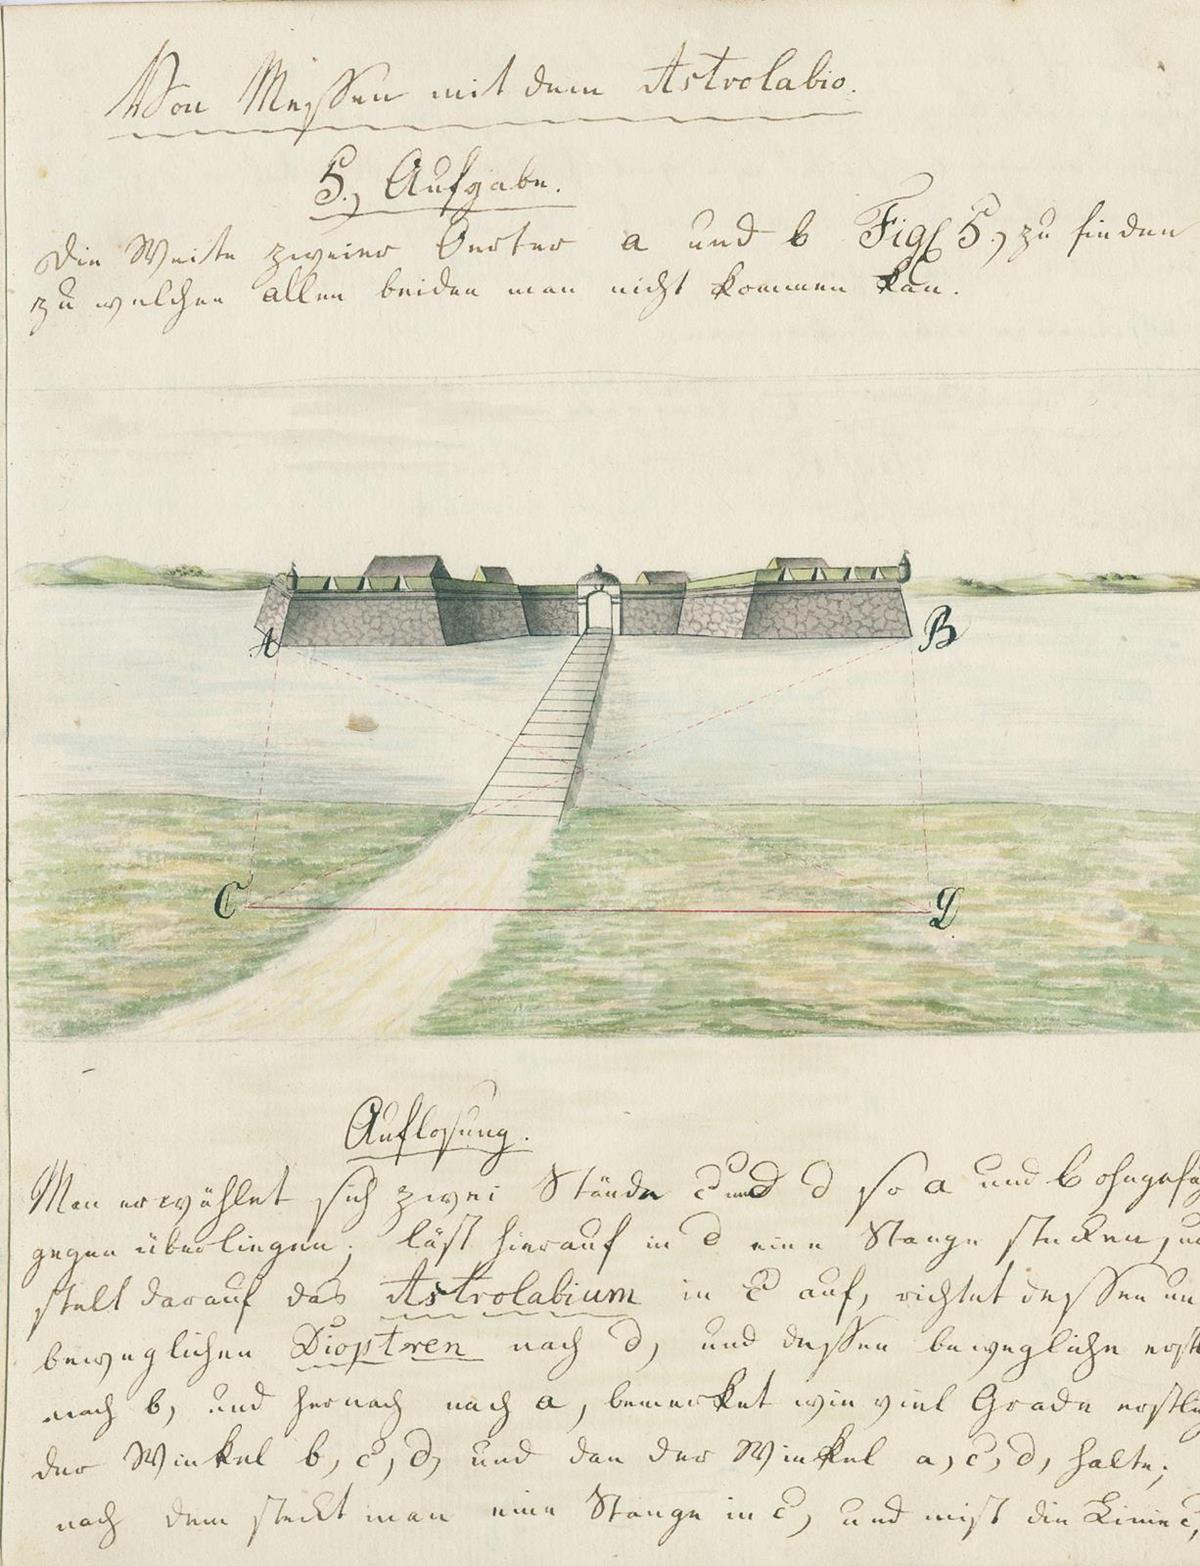 Von Messen mit dem Astrolabio.
5., Aufgabe.
Die Weite zweier Oerter a und b Fig: 5., zu finden
zu welchen allen beiden man nicht kommen kan.
A
B
C
D
Auflosung.
Man erwählet sich zwei Stände c und d so a und b ohngefä
gegen überliegen; läst hierauf in d eine Stange stecken, un
stelt darauf das Astrolabium in c auf, richtet dessen un
beweglichen Dioptren nach d, und dessen bewegliche erst
nach b, und hernach nach a, bemerket wie viel Grade erstli
der Winkel b, c, d, und dan der Winkel a, c, d, halte;
nach dem steckt man eine Stange in c, und mist die Linie c,